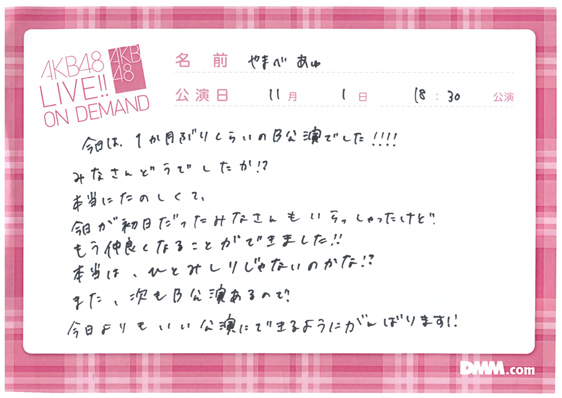 AKB48
LIVE!!
ON DEMAND
AKB
48
名前 やまべ あゆ
公演日 11月 1日 18:30 公演
今日は、1か月ぶりくらいのB公演でした!!!!
みなさんどうでしたか!?
本当にたのしくて、
今日が初日だったみなさんもいらっしゃったけど
もう仲良くなることができました!!
本当は、ひとみしりじゃないのかな!?
また、次もB公演あるので
今日よりもいい公演にできるようにがんばります!
DMM.com